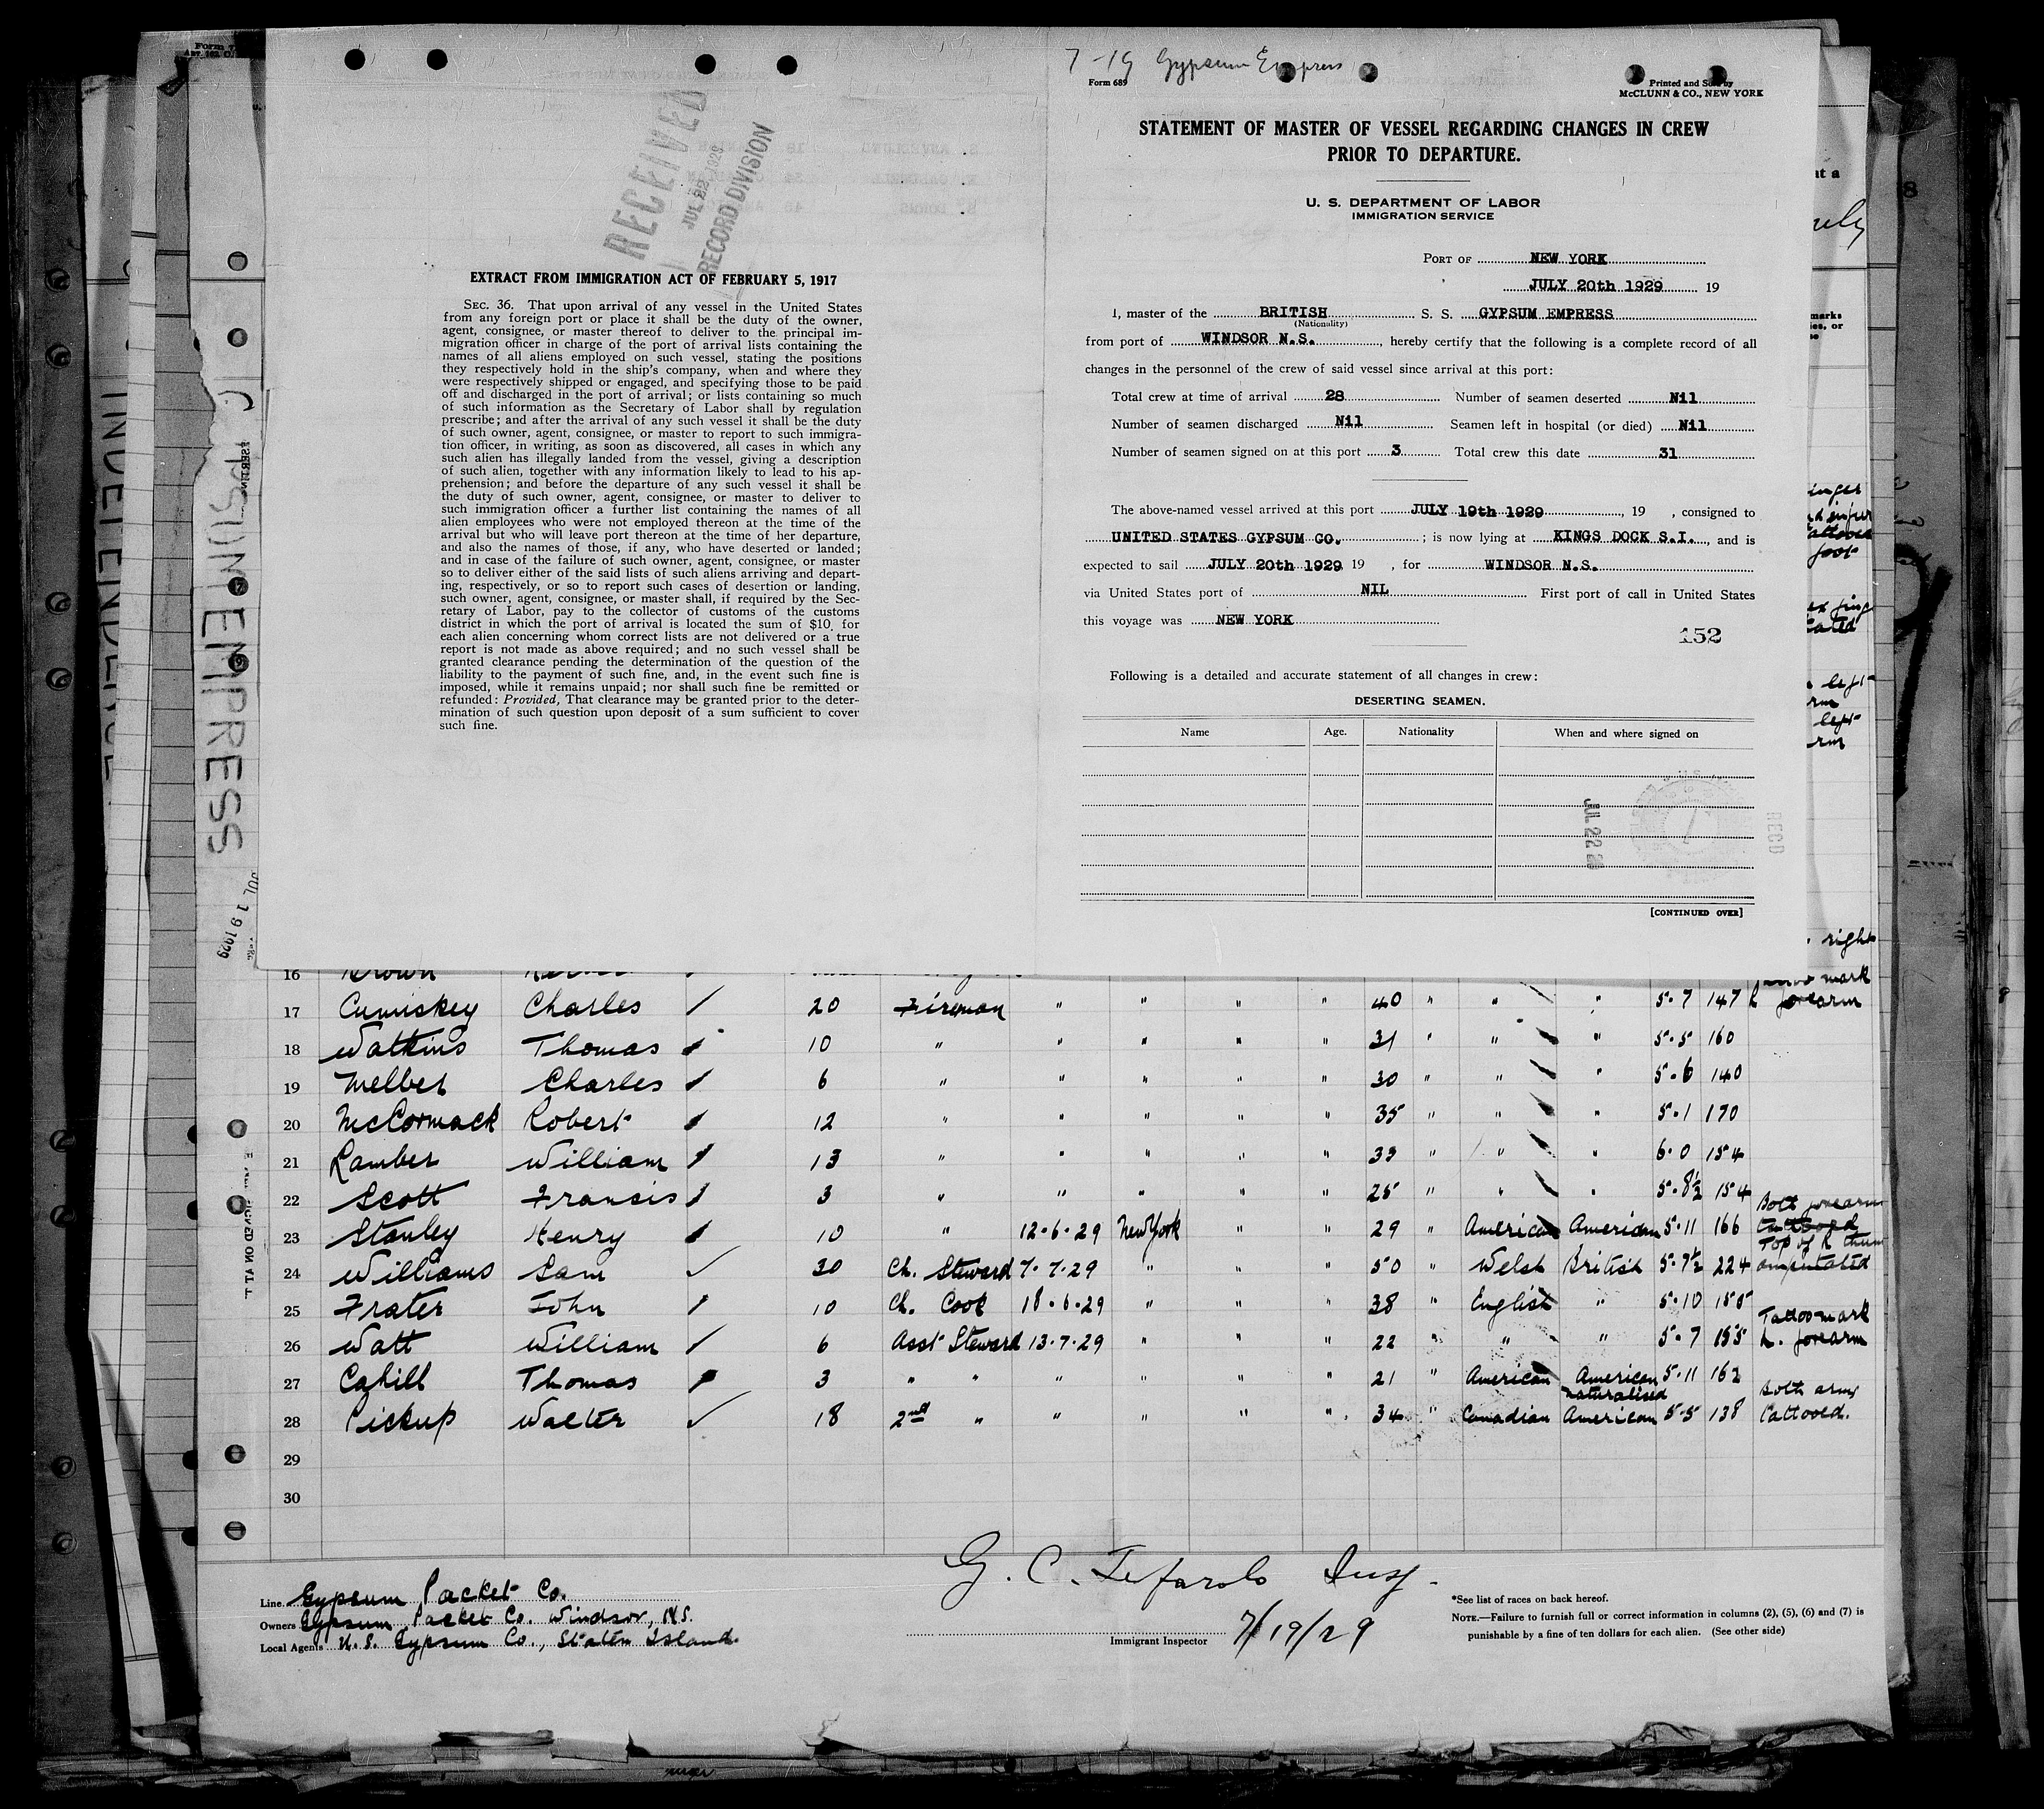 7-19 Gypsum Empress
Form 689
Printed and Sold by
McCLUNN & CO., NEW YORK
STATEMENT OF MASTER OF VESSEL REGARDING CHANGES IN CREW
PRIOR TO DEPARTURE.
U. S. DEPARTMENT OF LABOR
IMMIGRATION SERVICE
PORT OF NEW YORK
JULY 20th 1929 19
I, master of the BRITISH S. S. GYPSUM EMPRESS
(Nationality)
from port of WINDSOR N.S., hereby certify that the following is a complete record of all
changes in the personnel of the crew of said vessel since arrival at this port:
Total crew at time of arrival 28 Number of seamen deserted Nil
Number of seamen discharged Nil Seamen left in hospital (or died) Nil
Number of seamen signed on at this port 3 Total crew this date 31
The above-named vessel arrived at this port JULY 19th 1929, 19 , consigned to
UNITED STATES GYPSUM CO. ; is now lying at KINGS DOCK S.I., and is
expected to sail JULY 20th 1929 19 , for WINDSOR N.S.
via United States port of NIL First port of call in United States
this voyage was NEW YORK
152
Following is a detailed and accurate statement of all changes in crew:
DESERTING SEAMEN.
Name Age. Nationality When and where signed on
JUL 22
REC'D
[CONTINUED OVER]
RECEIVED
JUL 22 1929
RECORD DIVISION
EXTRACT FROM IMMIGRATION ACT OF FEBRUARY 5, 1917
SEC. 36. That upon arrival of any vessel in the United States
from any foreign port or place it shall be the duty of the owner,
agent, consignee, or master thereof to deliver to the principal im-
migration officer in charge of the port of arrival lists containing the
names of all aliens employed on such vessel, stating the positions
they respectively hold in the ship's company, when and where they
were respectively shipped or engaged, and specifying those to be paid
off and discharged in the port of arrival; or lists containing so much
of such information as the Secretary of Labor shall by regulation
prescribe; and after the arrival of any such vessel it shall be the duty
of such owner, agent, consignee, or master to report to such immigra-
tion officer, in writing, as soon as discovered, all cases in which any
such alien has illegally landed from the vessel, giving a description
of such alien, together with any information likely to lead to his ap-
prehension; and before the departure of any such vessel it shall be
the duty of such owner, agent, consignee, or master to deliver to
such immigration officer a further list containing the names of all
alien employees who were not employed thereon at the time of the
arrival but who will leave port thereon at the time of her departure,
and also the names of those, if any, who have deserted or landed;
and in case of the failure of such owner, agent, consignee, or master
so to deliver either of the said lists of such aliens arriving and depart-
ing, respectively, or so to report such cases of desertion or landing,
such owner, agent, consignee, or master shall, if required by the Sec-
retary of Labor, pay to the collector of customs of the customs
district in which the port of arrival is located the sum of $10 for
each alien concerning whom correct lists are not delivered or a true
report is not made as above required; and no such vessel shall be
granted clearance pending the determination of the question of the
liability to the payment of such fine, and, in the event such fine is
imposed, while it remains unpaid; nor shall such fine be remitted or
refunded: Provided, That clearance may be granted prior to the deter-
mination of such question upon deposit of a sum sufficient to cover
such fine.
INDEPENDENCE
GYPSUM EMPRESS
JUL 19 1929
16 Brown
17 Cumiskey Charles 20 Fireman " " " " 40 " " " 5.7 147 L forearm
18 Watkins Thomas 10 " " " " " 31 " " " 5.5 160
19 Melbet Charles 6 " " " " " 30 " " " 5.6 140
20 McCormack Robert 12 " " " " " 35 " " " 5.1 170
21 William 13 " " " " " 33 " " " 6.0 154
22 Scott Francis 3 " " " " " 25 " " " 5.8½ 154
23 Stanley Henry 10 " 12.6.29 New York " " 29 " American American 5.11 166 Both forearms tattooed
24 Williams Sam 30 Ch. Steward 7.7.29 " " " 50 " Welsh British 5.7½ 224 Top of R thum amputated
25 Frater John 10 Ch. Cook 18.6.29 " " " 38 " English " 5.10 155
26 Watt William 6 Asst Steward 13.7.29 " " " 22 " " " 5.7 155 Tattoo mark L. forearm
27 Cahill Thomas 3 " " " " " " 21 " American American 5.11 162
28 Pickup Walter 18 2nd " " " " " 34 " Canadian naturalised American 5.5 138 Both arms tattooed.
29
30
G. C. Insp.
Line Gypsum Packet Co.
Owners Gypsum Packet Co. Windsor, N.S.
Local Agents U.S. Gypsum Co., Staten Island.
Immigrant Inspector 7/19/29
*See list of races on back hereof.
NOTE.—Failure to furnish full or correct information in columns (2), (5), (6) and (7) is
punishable by a fine of ten dollars for each alien. (See other side)